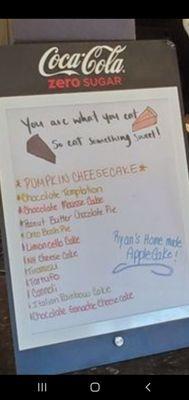 Coca-Cola
zero SUGAR
You are what you eat
So eat something sweet!
*PUMPKIN CHEESECAKE*
*Chocolate Temptation
*Chocolate Mousse Cake
*Peanut Butter Chocolate Pie
*Oreo Bash Pie
*Limoncello Cake
*NY Cheese Cake
*Tiramisu
*Tartufo
*Cannoli
*Italian Rainbow Cake
*Chocolate Ganache Cheesecake
Ryan's Home made
Apple Cake!